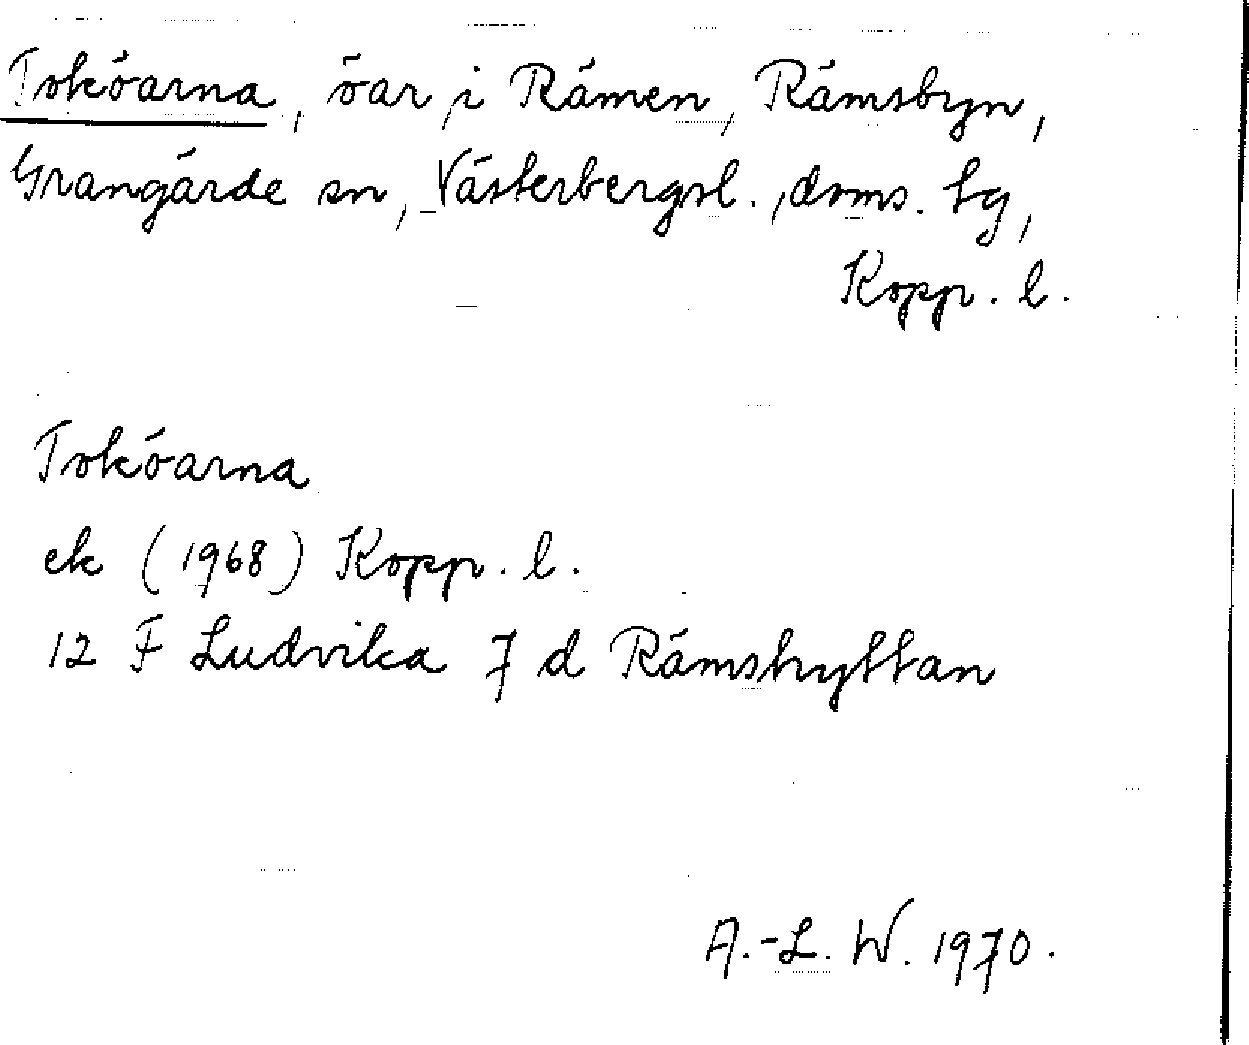 Toköarna, öar i Råmen, Råmsbyn,
Grangärde sn, Västerbergsl., doms. tg,
Kopp. l.
Toköarna
ek (1968) Kopp. l.
12 F Ludvika 7 d Råmshyttan
A.-L. W. 1970.